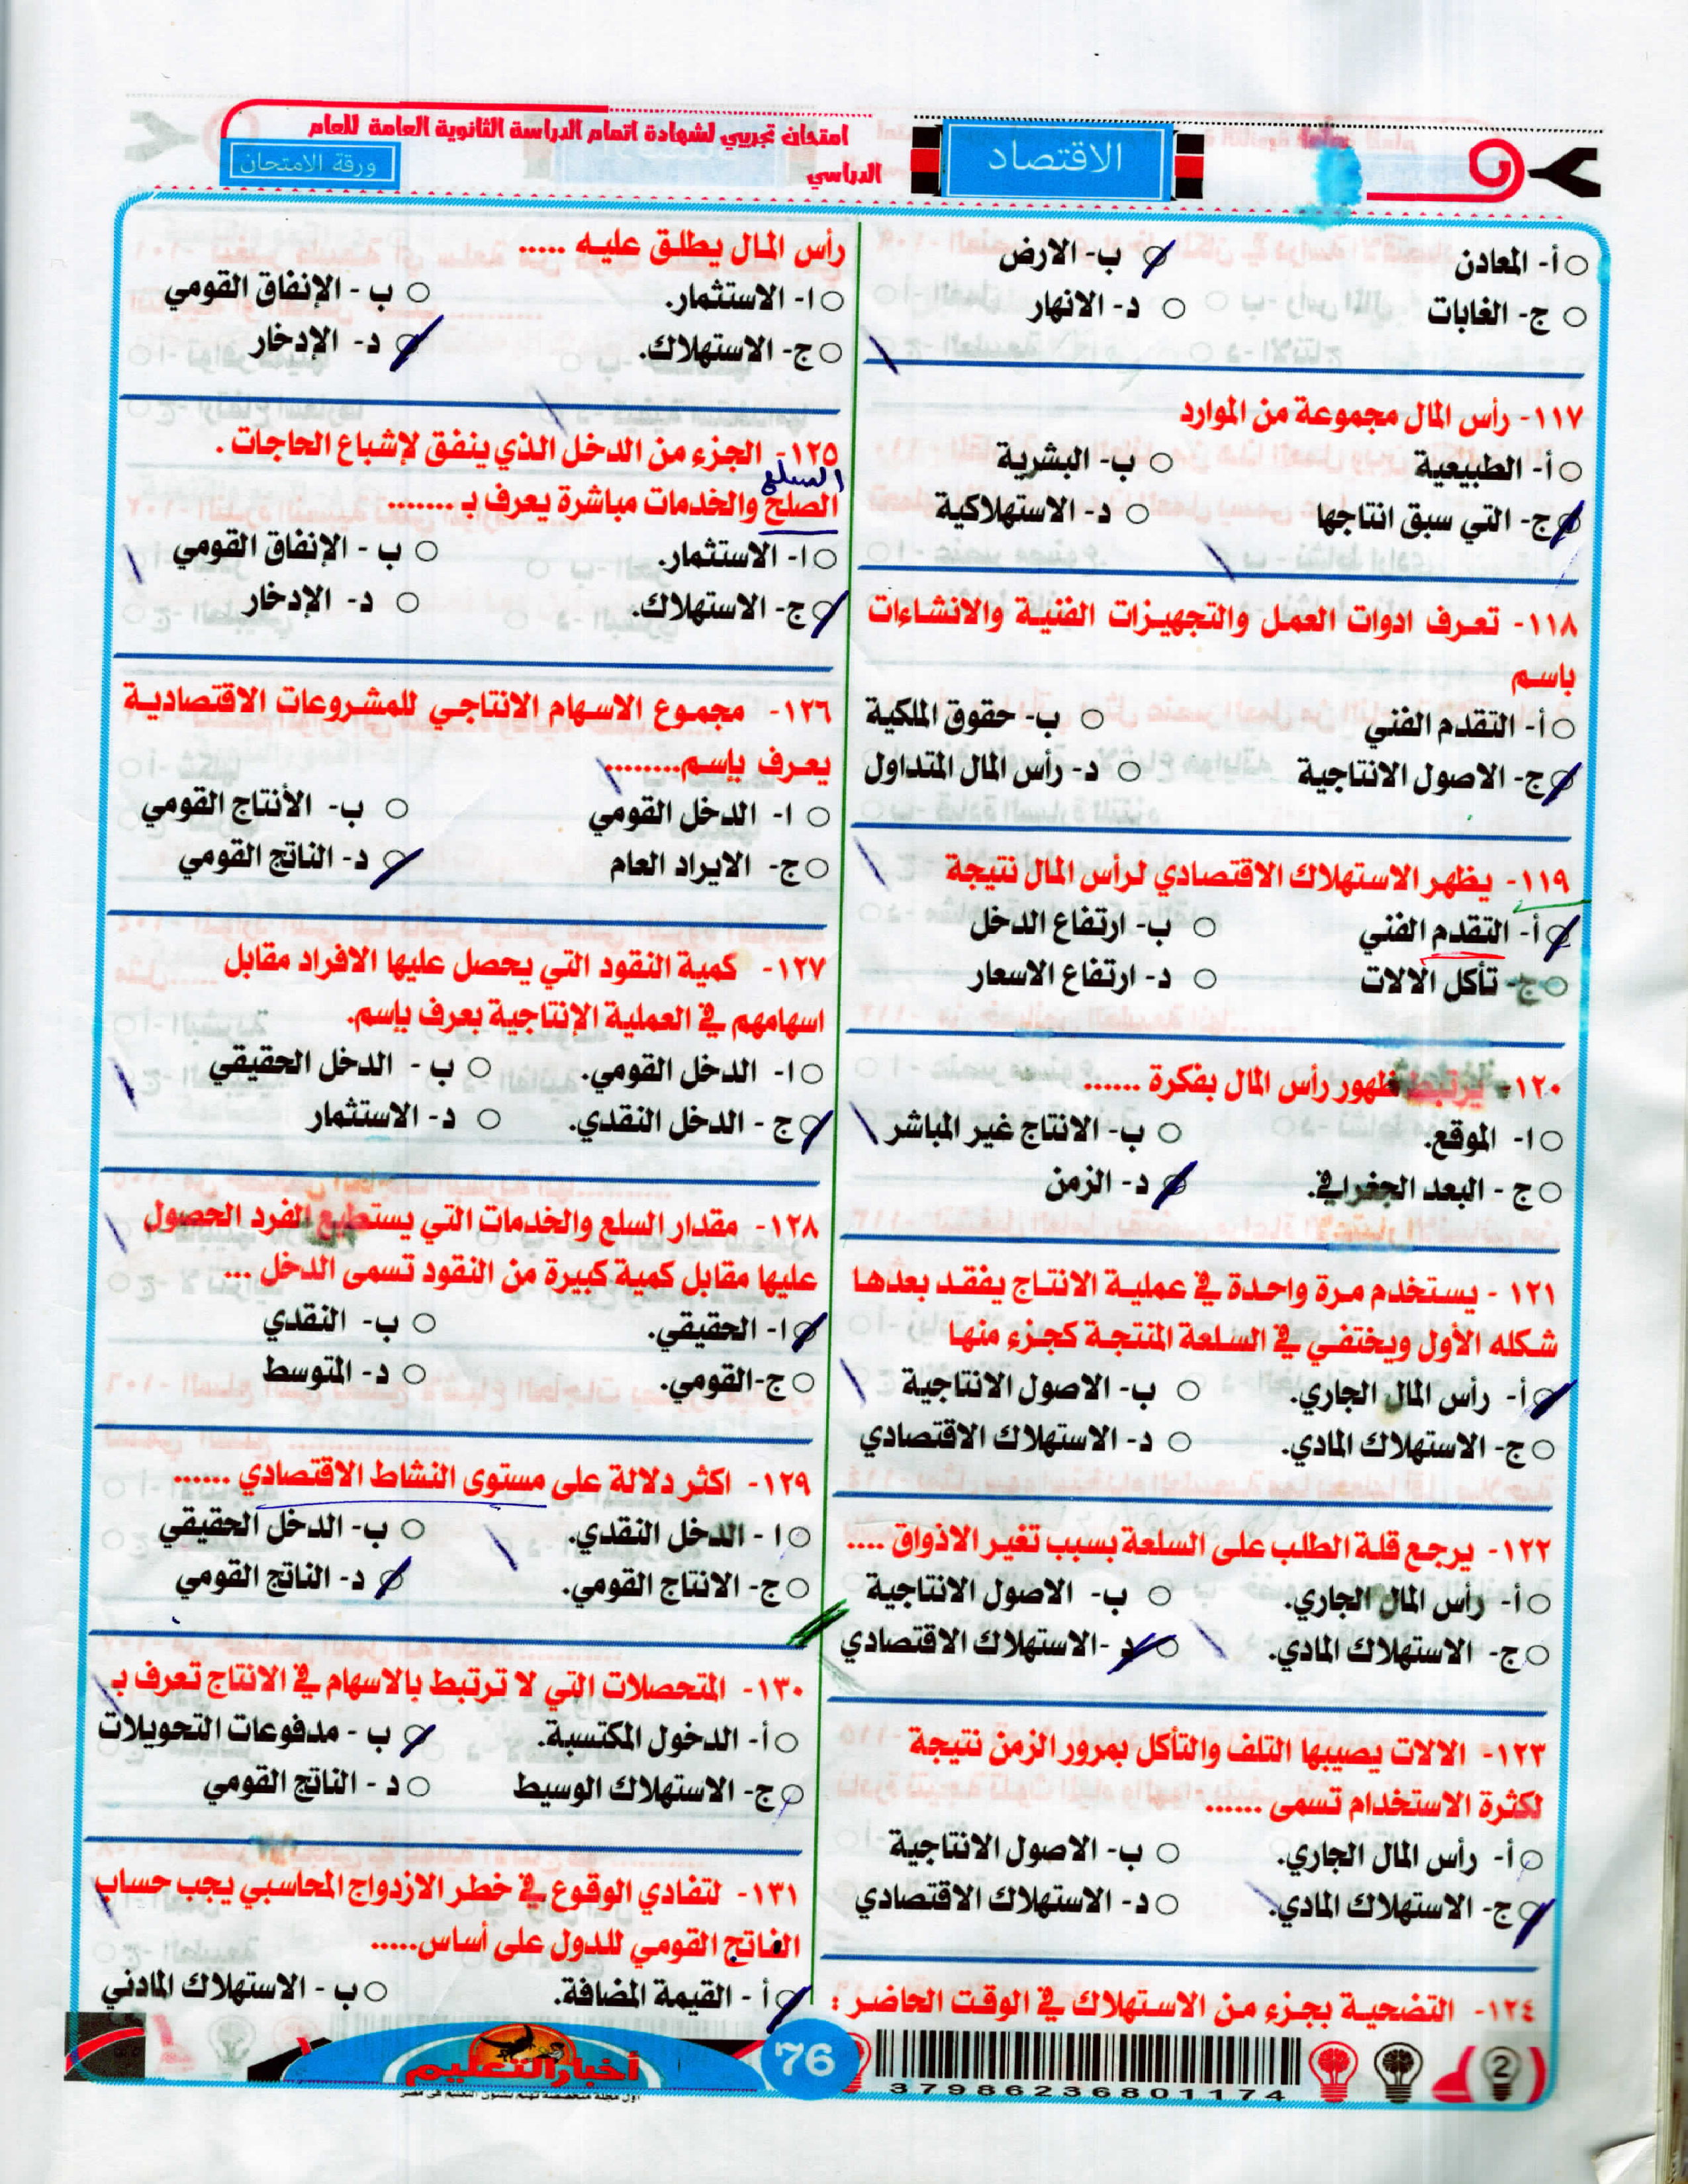 امتحان تجريبي لشهادة اتمام الدراسة الثانوية العامة للعام
الدراسي
ورقة الامتحان
الاقتصاد
أ- المعادن
ب- الارض
ج- الغابات
د- الانهار
١١٧- رأس المال مجموعة من الموارد
أ- الطبيعية
ب- البشرية
ج- التي سبق انتاجها
د- الاستهلاكية
١١٨- تعرف ادوات العمل والتجهيزات الفنية والانشاءات
باسم
أ- التقدم الفني
ب- حقوق الملكية
ج- الاصول الانتاجية
د- رأس المال المتداول
١١٩- يظهر الاستهلاك الاقتصادي لرأس المال نتيجة
أ- التقدم الفني
ب- ارتفاع الدخل
ج- تأكل الالات
د- ارتفاع الاسعار
١٢٠- يرتبط ظهور رأس المال بفكرة ......
ا- الموقع.
ب- الانتاج غير المباشر
ج - البعد الجغرافي.
د- الزمن
١٢١ - يستخدم مرة واحدة في عملية الانتاج يفقد بعدها
شكله الأول ويختفي في السلعة المنتجة كجزء منها
أ- رأس المال الجاري.
ب- الاصول الانتاجية
ج- الاستهلاك المادي.
د- الاستهلاك الاقتصادي
١٢٢- يرجع قلة الطلب على السلعة بسبب تغير الاذواق ....
أ- رأس المال الجاري.
ب- الاصول الانتاجية
ج- الاستهلاك المادي.
د-الاستهلاك الاقتصادي
١٢٣- الالات يصيبها التلف والتأكل بمرور الزمن نتيجة
لكثرة الاستخدام تسمى ......
أ- رأس المال الجاري.
ب- الاصول الانتاجية
ج- الاستهلاك المادي.
د- الاستهلاك الاقتصادي
١٢٤- التضحية بجزء من الاستهلاك في الوقت الحاضر :
رأس المال يطلق عليه .....
ا- الاستثمار.
ب - الإنفاق القومي
ج- الاستهلاك.
د- الإدخار
١٢٥- الجزء من الدخل الذي ينفق لإشباع الحاجات .
السلع
الصلح والخدمات مباشرة يعرف بـ .......
ا- الاستثمار.
ب - الإنفاق القومي
ج- الاستهلاك.
د- الإدخار
١٢٦- مجموع الاسهام الانتاجي للمشروعات الاقتصادية
يعرف بإسم........
ا- الدخل القومي
ب- الأنتاج القومي
ج- الايراد العام
د- الناتج القومي
١٢٧- كمية النقود التي يحصل عليها الافراد مقابل
اسهامهم في العملية الإنتاجية بعرف بإسم.
ا- الدخل القومي.
ب - الدخل الحقيقي
ج - الدخل النقدي.
د- الاستثمار
١٢٨- مقدار السلع والخدمات التي يستطيع الفرد الحصول
عليها مقابل كمية كبيرة من النقود تسمى الدخل ...
ا- الحقيقي.
ب- النقدي
ج-القومي.
د- المتوسط
١٢٩- اكثر دلالة على مستوى النشاط الاقتصادي ......
ا - الدخل النقدي.
ب- الدخل الحقيقي
ج- الانتاج القومي.
د- الناتج القومي
١٣٠- المتحصلات التي لا ترتبط بالاسهام في الانتاج تعرف بـ
أ- الدخول المكتسبة.
ب - مدفوعات التحويلات
ج- الاستهلاك الوسيط
د - الناتج القومي
١٣١- لتفادي الوقوع في خطر الازدواج المحاسبي يجب حساب
الناتج القومي للدول على أساس.....
أ - القيمة المضافة.
ب - الاستهلاك المادني
أخبار التعليم
76
3798623680 1174
2